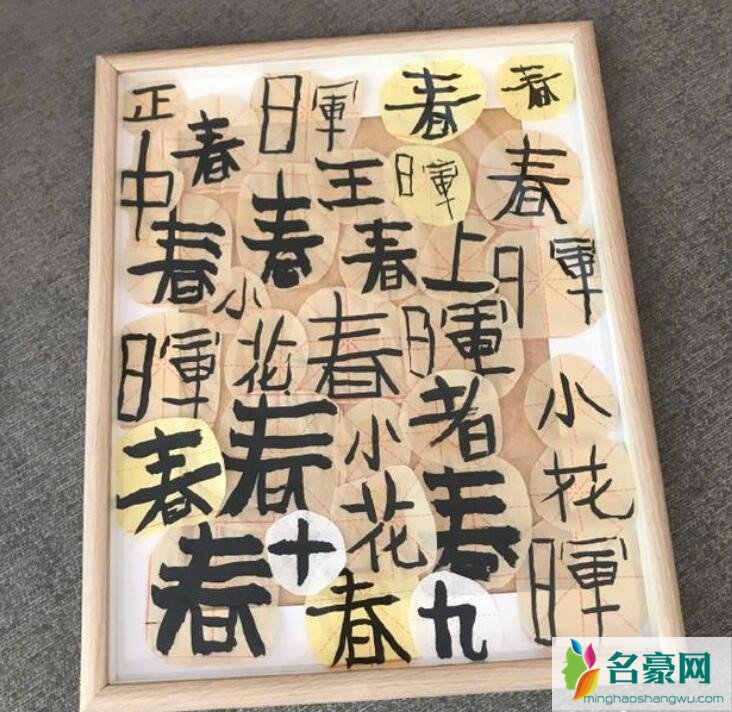 正
春
暉
春
春
中
王
暉
春
春
春
春
上
暉
小
暉
花
春
暉
春
小
者
小
春
花
春
花
春
十
春
九
暉
名豪网
minghaoshangwu.com